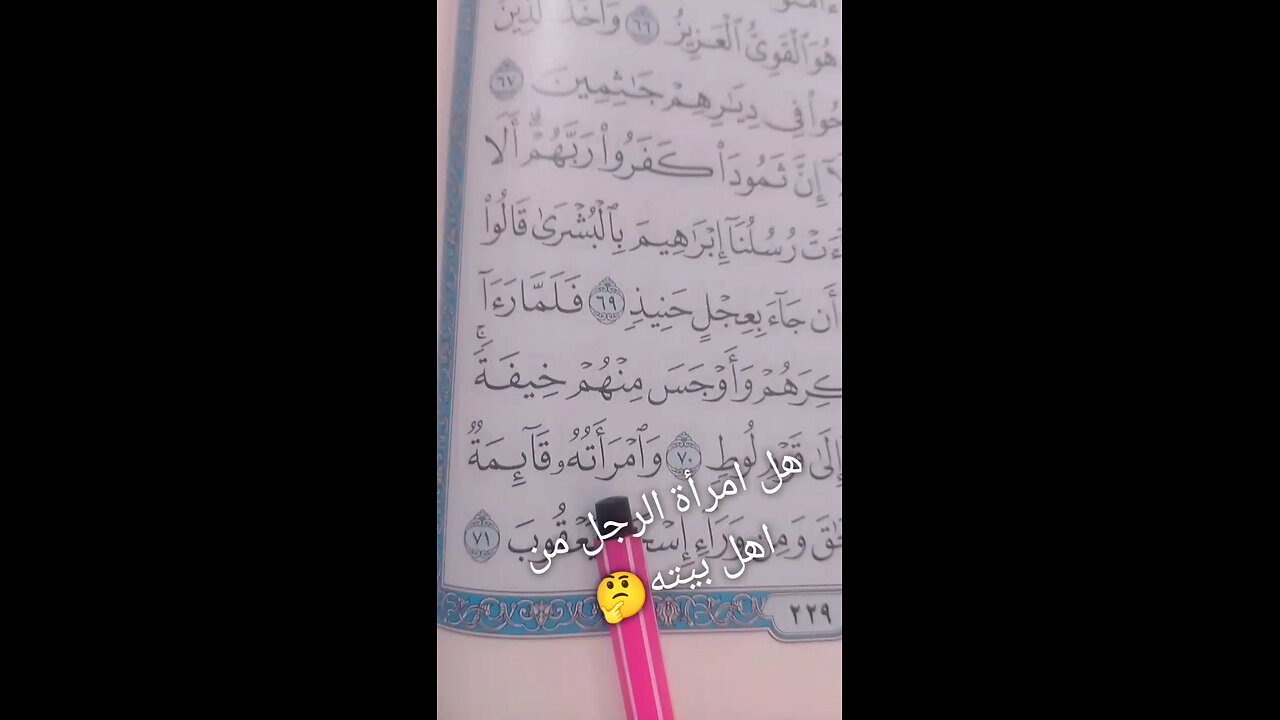 ءامنوا
هُوَ ٱلْقَوِىُّ ٱلْعَزِيزُ ٦٦ وَأَخَذَ ٱلَّذِينَ
حُوا۟ فِى دِيَـٰرِهِمْ جَـٰثِمِينَ ٦٧
إِنَّ ثَمُودَا۟ كَفَرُوا۟ رَبَّهُمْ ۗ أَلَا
ءَتْ رُسُلُنَآ إِبْرَٰهِيمَ بِٱلْبُشْرَىٰ قَالُوا۟
أَن جَآءَ بِعِجْلٍ حَنِيذٍ ٦٩ فَلَمَّا رَءَآ
كِرَهُمْ وَأَوْجَسَ مِنْهُمْ خِيفَةً ۚ
إِلَىٰ قَوْمِ لُوطٍ ٧٠ وَٱمْرَأَتُهُۥ قَآئِمَةٌ
حَـٰقَ وَمِن وَرَآءِ إِسْحَـٰقَ يَعْقُوبَ ٧١
هل امرأة الرجل من
اهل بيته 🤔
٢٢٩